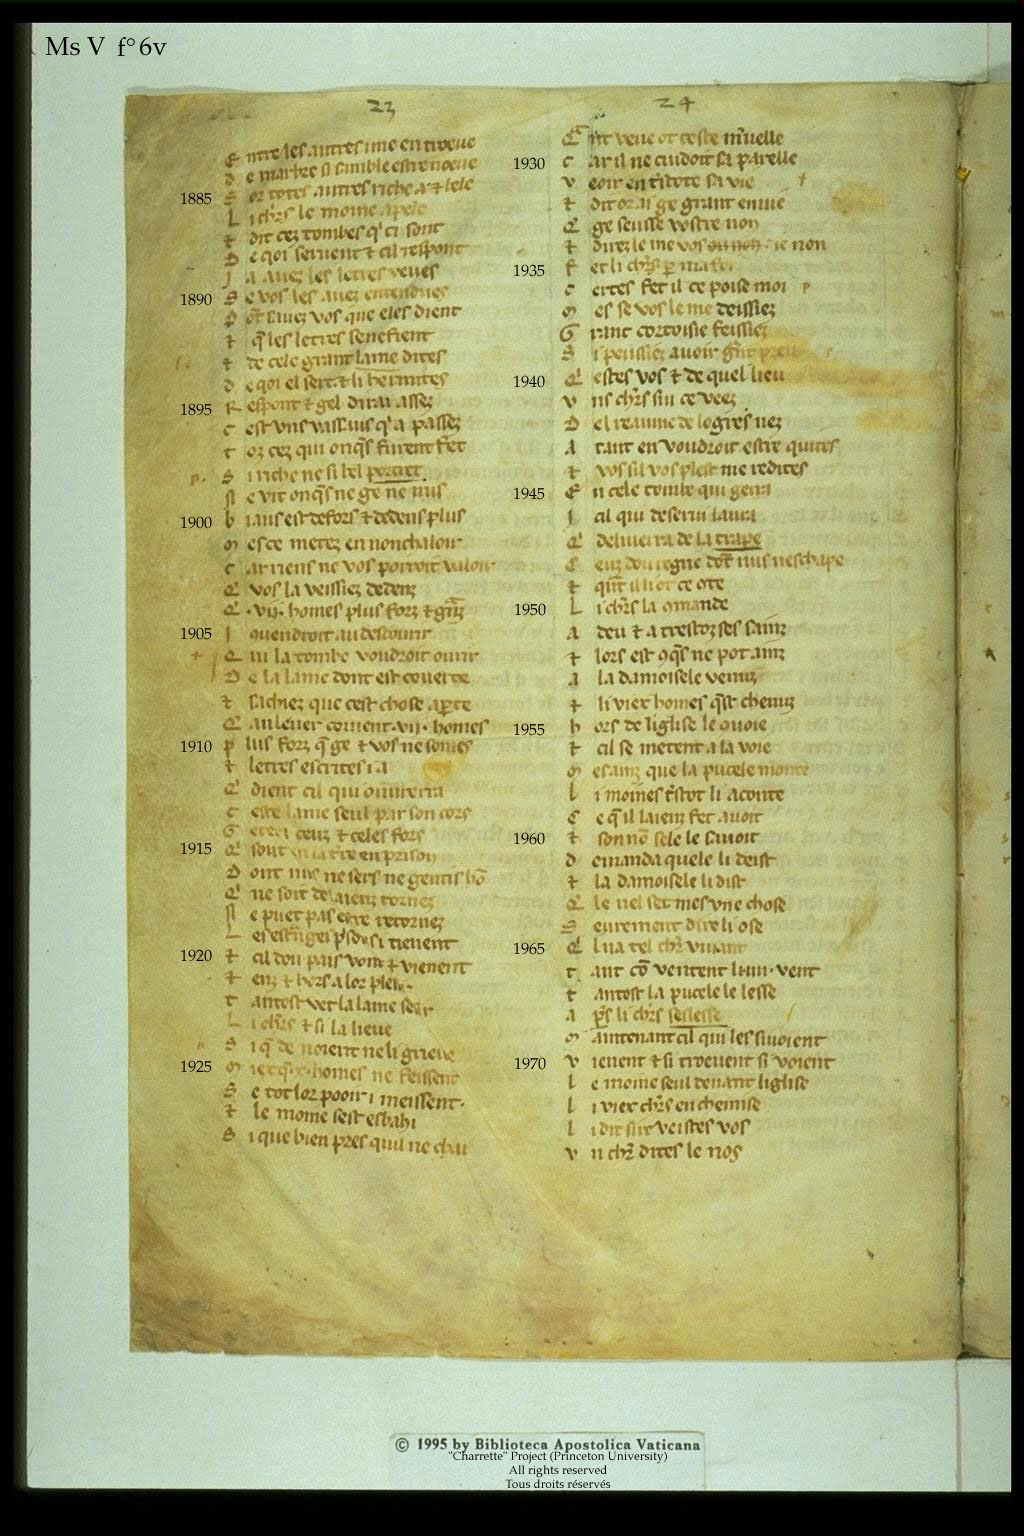 Ms V f° 6v
23
E ntre les autres une en troeue
D e marbre si sanble estre noeue
1885 S or totes autres riche & bele
L i chrs le moine apele
& dit cez tombes q' ci sont
D e qoi seruent & cil respont
J a auez les letres veues
1890 S e vos les auez entendues
D ōt sauez vos que eles dient
& q̄ les letres senefient
& de cele grant lame dites
D e qoi el sert & li hermites
1895 R espont & gel dirai assez
C est vns vasseaus q' a passez
T oz cez qui onq̄s furent fet
S i riche ne si bel portret
N e vit onq̄s ne ge ne nus
1900 b iaus est defors & dedens plus
M es ce metez en nonchaloir
C ar riens ne vos porroit valoir
Q' vos la veissiez dedenz
Q' .vij. homes plus forz & g̃nz
1905 J quendroit au descourir
Q ui la tombe voudroit ourir
D e la lame dont est couerte
& sachiez que cest chose aperte
Q' au leuer couient .vij. homes
1910 P lus forz q̄ ge & vos ne somes
& letres escrites i a
Q' dient cil qui ouuerra
C este lame seul par son cors
G etera ceus & celes fors
1915 Q' sont en la t're en prison
D ont nus ne sers ne gentis hō
Q' ne soit de laienz tornez
N e puet pas estre retornez
L es estr̃nges prisons i tienent
1920 & cil dou pais vont & vienent
& enz & hors a lor plesir
T antost vet la lame sesir
L i chrs & si la lieue
S i q̄ de noient ne li grieue
1925 M
S e tot lor pooir i meissent
& le moine sest esbahi
S i que bien pres quil ne chai
24
Q' nt veue ot ceste m'uelle
1930 C ar il ne cuidoit sa parelle
V eoir en t'stote sa vie
& dit or ai ge grant enuie
Q' ge seusse vostre non
& direz le me vos ou non ie non
1935 F et li chrs p ma foi
C ertes fet il ce poise moi
M es se vos le me deissiez
G rant cortoisie feissiez
S i peussiez auoir g̃nt preu
1940 Q' estes vos & de quel lieu
V ns chrs sui ce veez
D el reaume de logres nez
A tant en voudroit estre quites
& vos sil vos plest me redites
1945 E n cele tombe qui gerra
J cil qui deserui laura
Q' deliuerra de la trape
C euz dou regne dōt nus neschape
& quāt il li ot ce ote
1950 L i chrs la comande
A deu & a trestoz ses sainz
& lors est 9q̄s ne pot ainz
A la damoisele venuz
& li viex homes q̄st chenuz
1955 h ors de liglise le quoie
& cil se metent a la voie
M es ainz que la pucele monte
L i moines t'stot li aconte
C e q̄ il laienz fet auoit
1960 & son nō sele le sauoit
D emanda quele li deist
& la damoisele li dist
Q' le nel set mes vne chose
S eurement dire li ose
1965 Q' l ni a tel chr viuant
T ant cō ventent li .iiii. vent
T antost la pucele le lesse
A p̄s li chrs seslesse
M aintenant cil qui les siuoient
1970 V ienent & si troeuent si voient
L e moine seul deuant liglise
L i viex chrs en chemise
L i dit sire veistes vos
V n chr dites le nos
© 1995 by Biblioteca Apostolica Vaticana
"Charrette" Project (Princeton University)
All rights reserved
Tous droits réservés